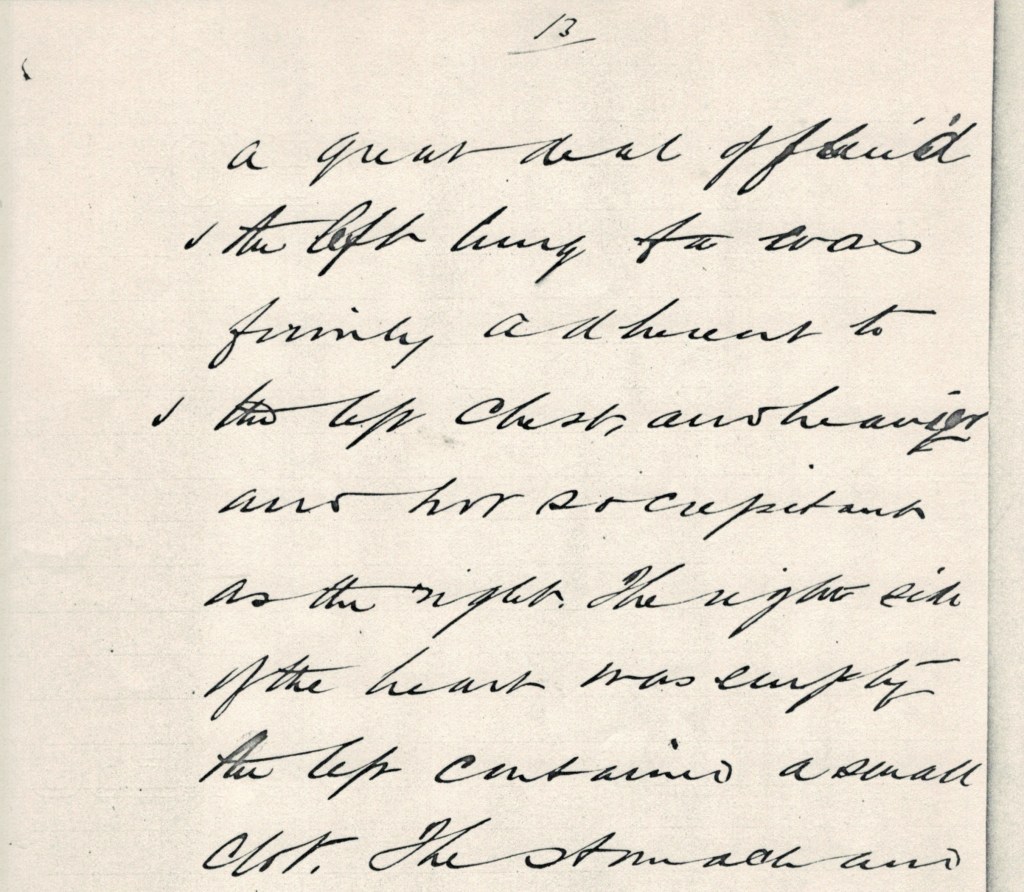 13
a great deal of fluid
the left lung was
firmly adherent to
the left chest, and heavier
and not so crepitant
as the right. The right side
of the heart was empty
the left contained a small
clot. The stomach and